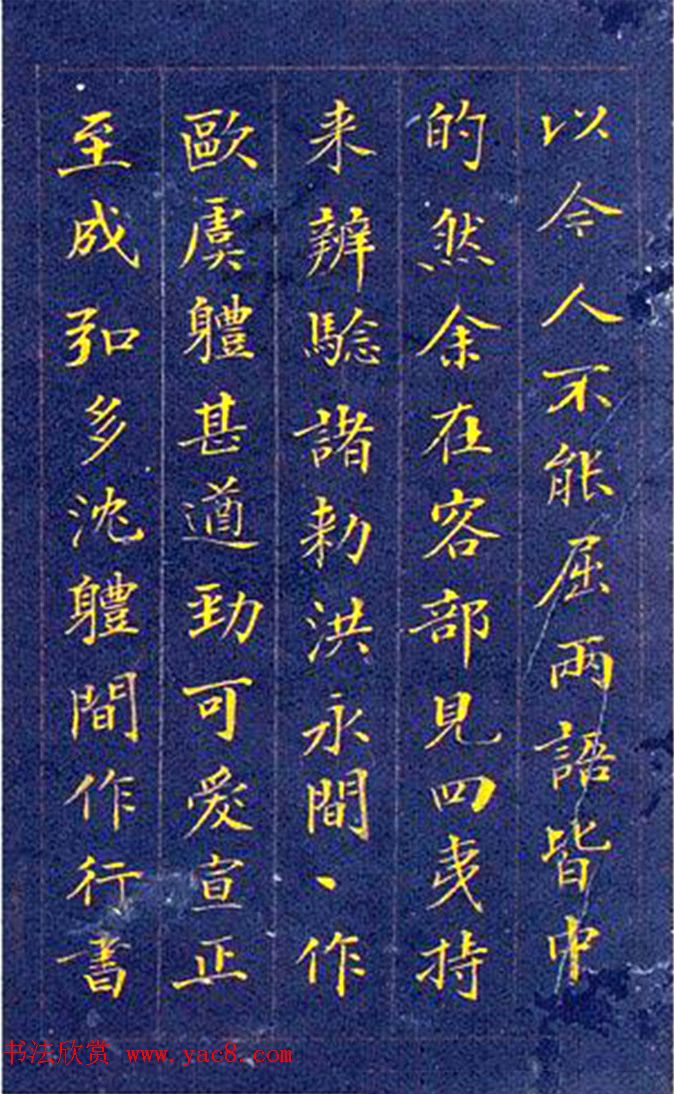 以今人不能屈兩語皆中
的然余在容部見四夷持
来辨驗諸勅洪永間丶作
歐虞軆甚遒勁可愛宣正
至成弘多沈軆間作行書
书法欣赏 www.yac8.com